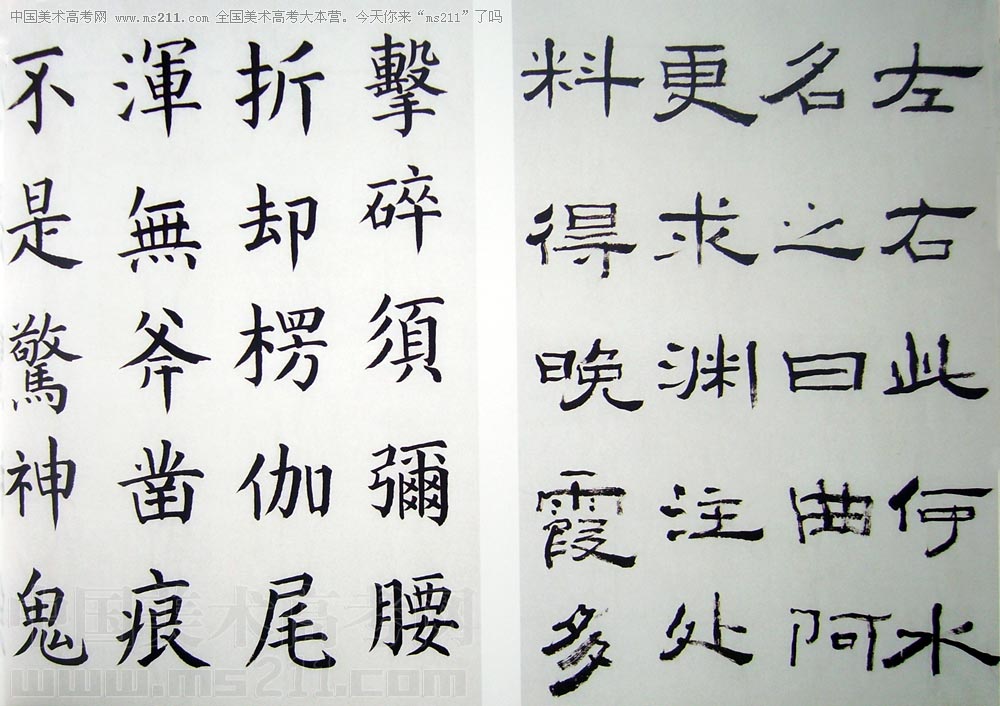 中国美术高考网 www.ms211.com 全国美术高考大本营。今天你来“ms211”了吗
左右此何水
名之曰曲阿
更求渊注处
料得晚霞多
擊碎須彌腰
折却楞伽尾
渾無斧凿痕
不是驚神鬼
中国美术高考网
www.ms211.com